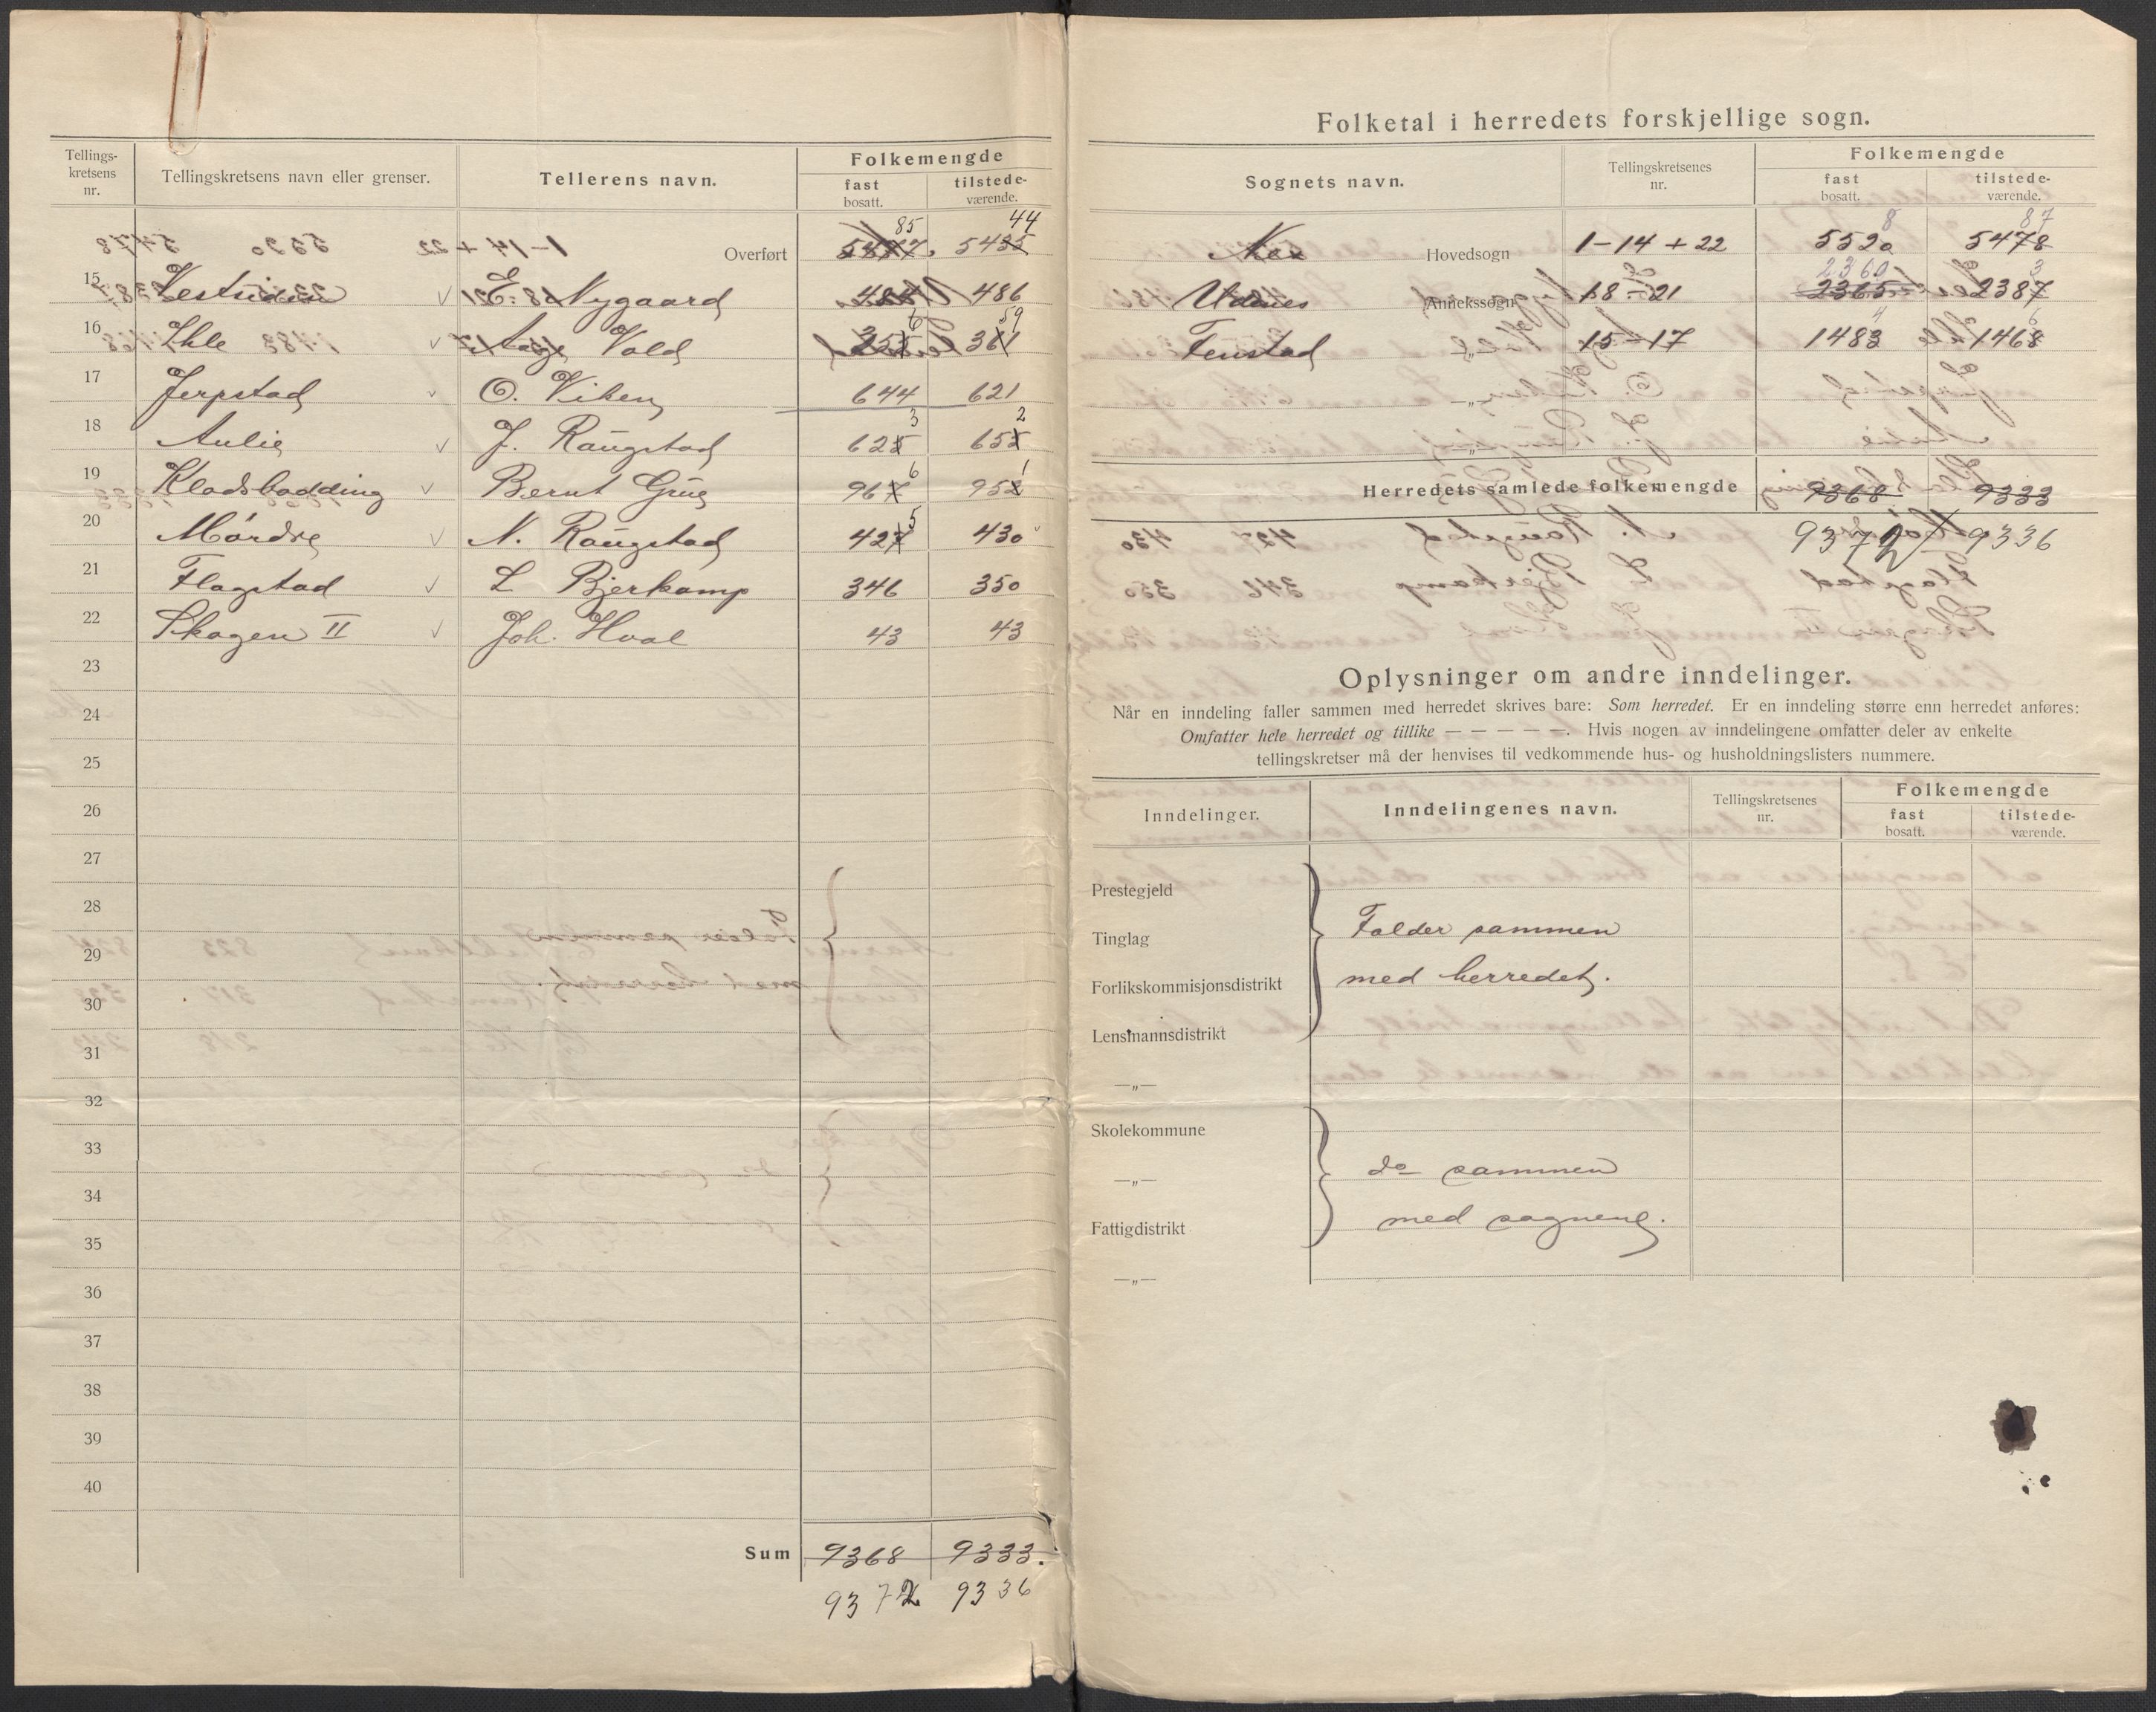 Tellings-
kretsens
nr.
Tellingskretsens navn eller grenser.
Tellerens navn.
Folkemengde
fast
bosatt.
tilstede-
værende.
Overført 5477 85 5435 44
15 Vestsiden E. Nygaard 484 486
16 Ihle Aage Vold 355 6 361 59
17 Jerpstad O. Viken 644 621
18 Aulie J. Raugstad 625 3 652 2
19 Klodsbødding Bernt Grue 967 6 952 1
20 Mørdre N. Raugstad 427 5 430
21 Flagstad L Bjerkamp 346 350
22 Skogen II Joh. Hval 43 43
23
24
25
26
27
28
29
30
31
32
33
34
35
36
37
38
39
40
Sum 9368 9333.
9372 9336
Folketal i herredets forskjellige sogn.
Sognets navn.
Tellingskretsenes
nr.
Folkemengde
fast
bosatt.
tilstede-
værende.
Nes Hovedsogn 1-14 + 22 5520 8 5478 87
Udnes Annekssogn 18-21 2365 2360 2387 3
Fenstad -„- 15-17 1483 4 1468 6
-„-
-„-
Herredets samlede folkemengde 9368 9333
9372 9336
Oplysninger om andre inndelinger.
Når en inndeling faller sammen med herredet skrives bare: Som herredet. Er en inndeling større enn herredet anføres:
Omfatter hele herredet og tillike — — — — —. Hvis nogen av inndelingene omfatter deler av enkelte
tellingskretser må der henvises til vedkommende hus- og husholdningslisters nummere.
Inndelinger.
Inndelingenes navn.
Tellingskretsenes
nr.
Folkemengde
fast
bosatt.
tilstede-
værende.
Prestegjeld
Tinglag Falder sammen
Forlikskommisjonsdistrikt med herredet.
Lensmannsdistrikt
—„—
Skolekommune
—„— do sammen
Fattigdistrikt med sognene.
—„—